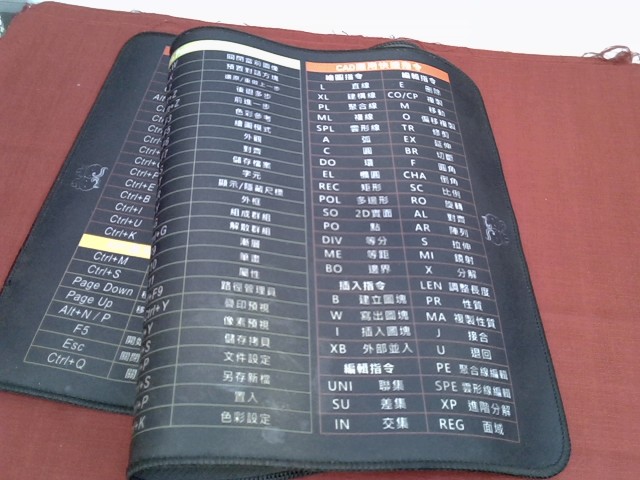 Ctrl+E
Ctrl+B
Ctrl+I
Ctrl+U
Ctrl+K
Ctrl+M
Ctrl+S
Page Down
Page Up
Alt+N / P
F5
Esc
Ctrl+Q
關閉當前圖像
預置對話方塊
還原/重做上一步
後退多步
前進一步
色彩參考
繪圖模式
外觀
對齊
儲存檔案
字元
顯示/隱藏尺標
外框
組成群組
解散群組
漸層
筆畫
屬性
路徑管理員
疊印預視
像素預視
儲存拷貝
文件設定
另存新檔
置入
色彩設定
CAD應用快捷指令
繪圖指令 編輯指令
L 直線 E 刪除
XL 建構線 CO/CP 複製
PL 聚合線 M 移動
ML 複線 O 偏移複製
SPL 雲形線 TR 修剪
A 弧 EX 延伸
C 圓 BR 切斷
DO 環 F 圓角
EL 橢圓 CHA 倒角
REC 矩形 SC 比例
POL 多邊形 RO 旋轉
SO 2D實面 AL 對齊
PO 點 AR 陣列
DIV 等分 S 拉伸
ME 等距 MI 鏡射
BO 邊界 X 分解
插入指令 LEN 調整長度
B 建立圖塊 PR 性質
W 寫出圖塊 MA 複製性質
I 插入圖塊 J 接合
XB 外部並入 U 退回
編輯指令 PE 聚合線編輯
UNI 聯集 SPE 雲形線編輯
SU 差集 XP 進階分解
IN 交集 REG 面域